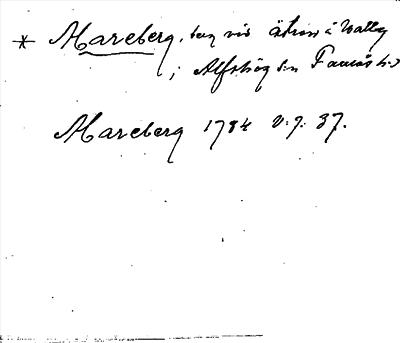 * Mareberg, berg vid Ätran i Vallby
i Alfshög sn Faurås hd
Mareberg 1784 v. j. 37.